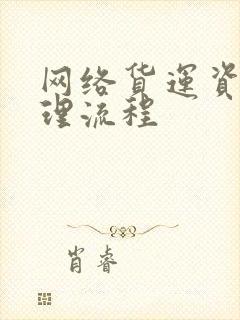 网络货運資
理流程
肖睿